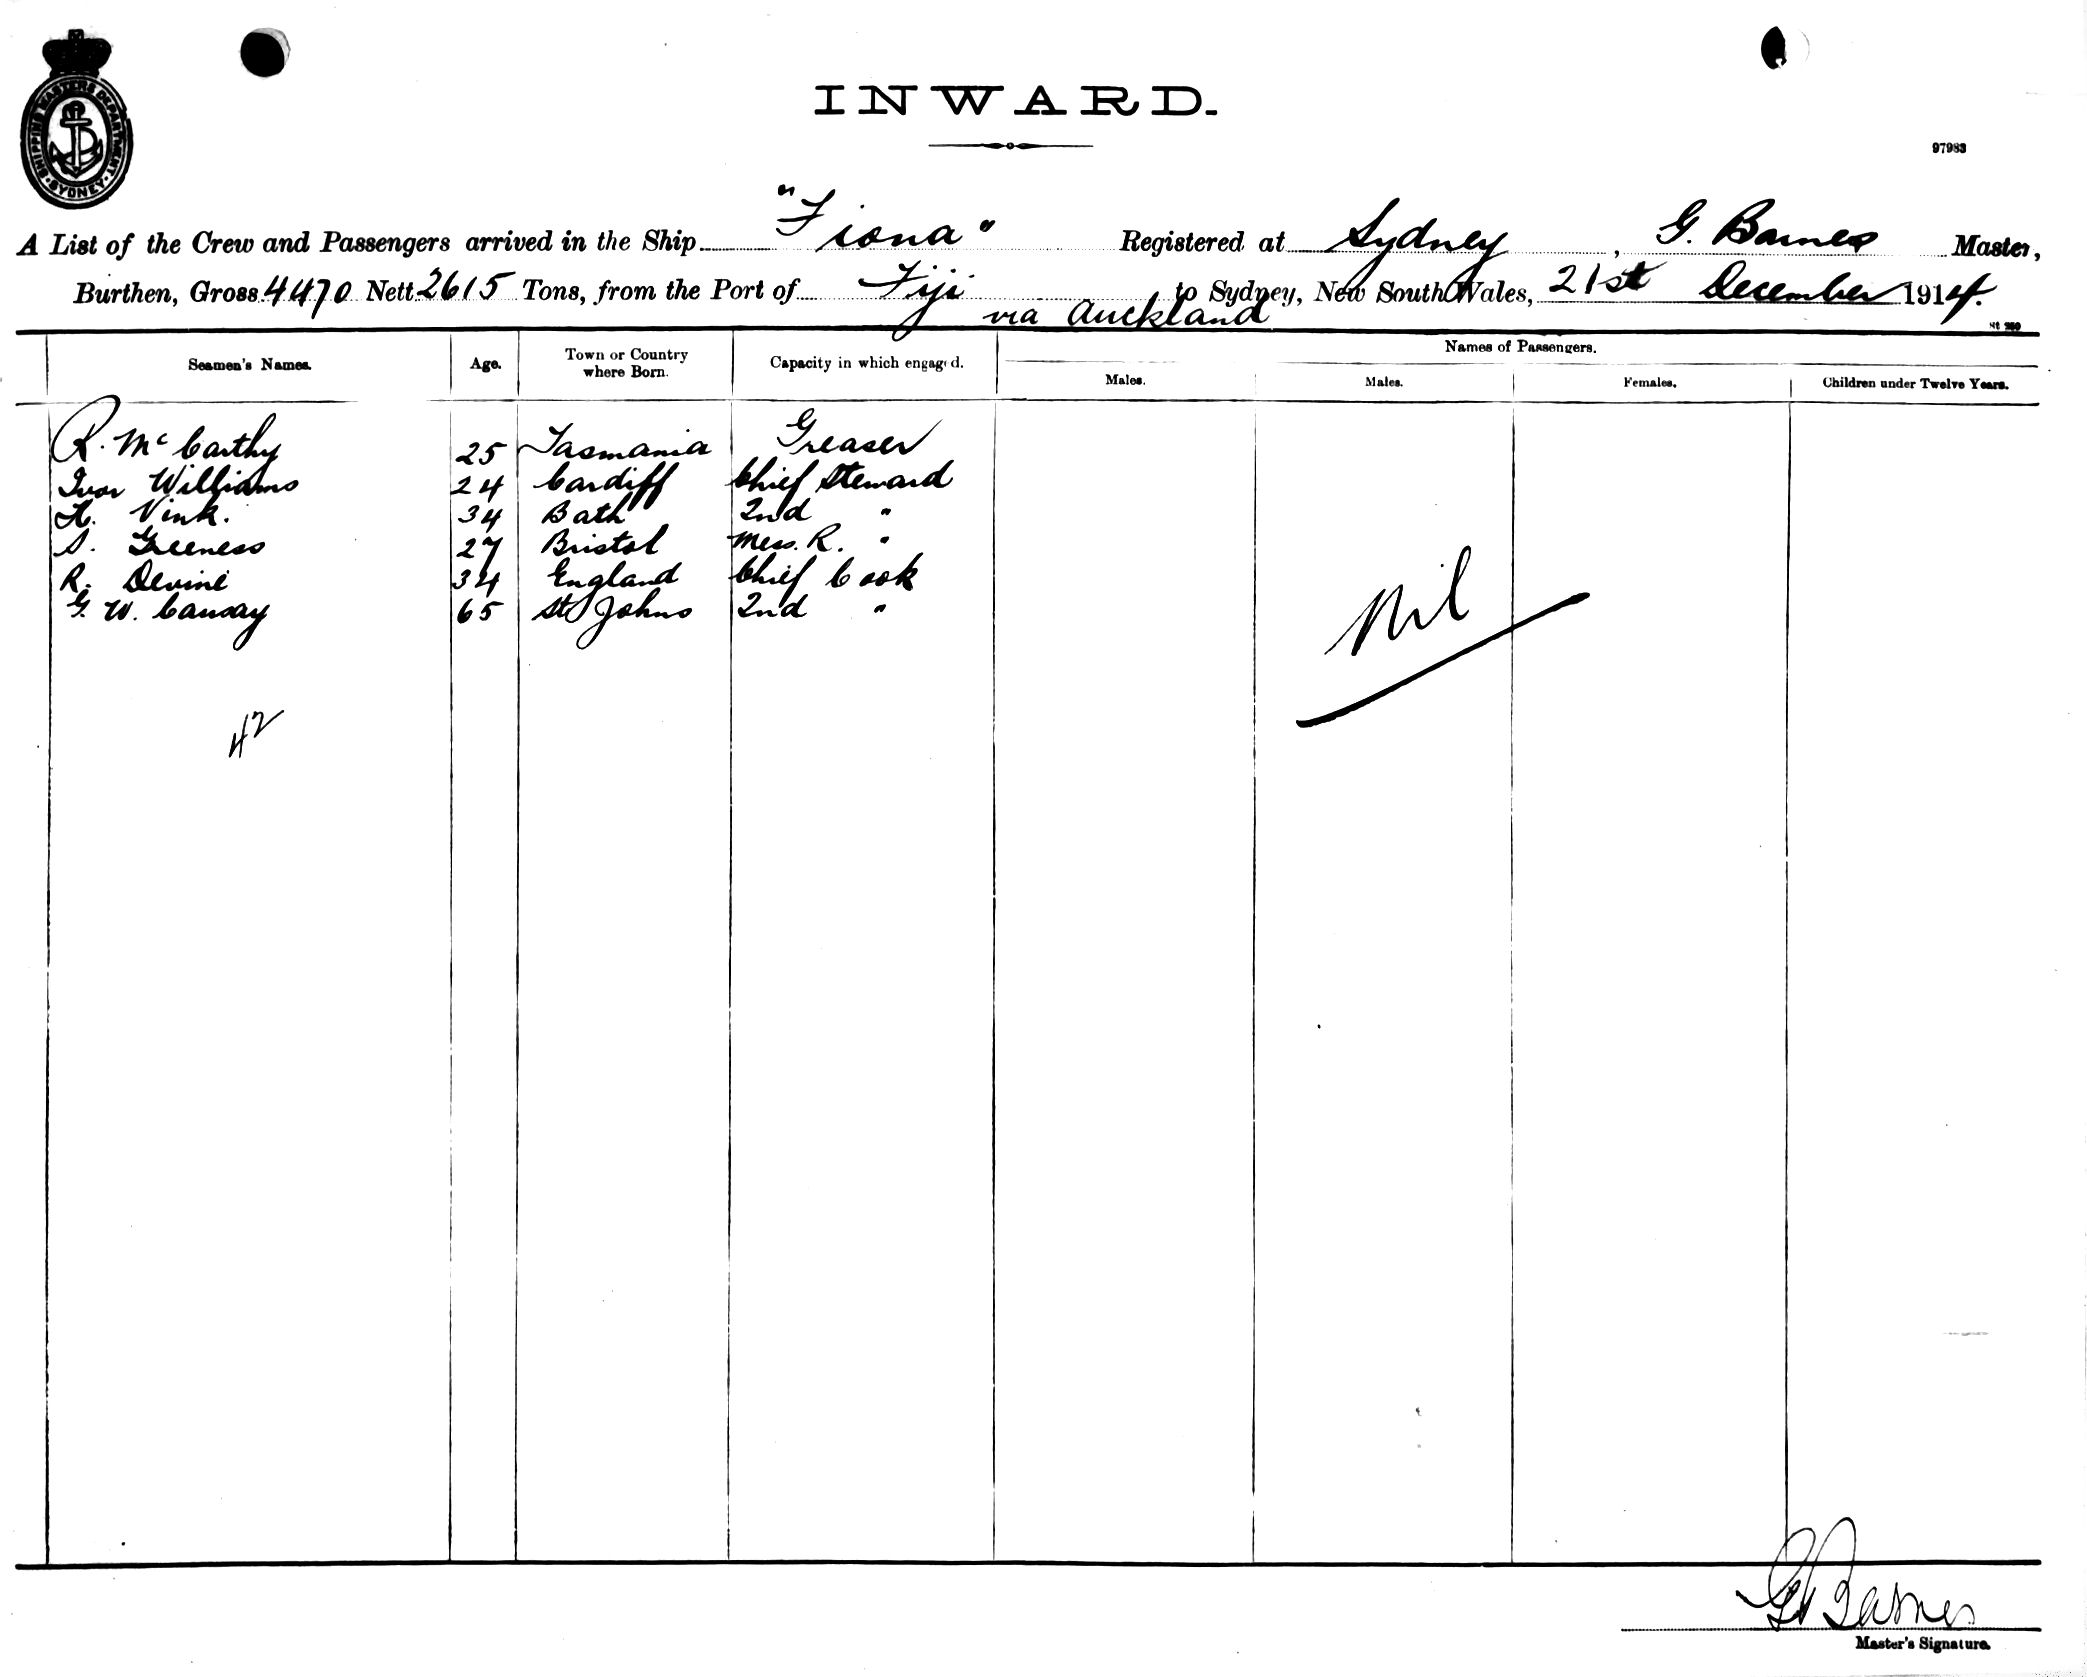 INWARD.
SHIPPING MASTERS DEPARTMENT
SYDNEY
97983
A List of the Crew and Passengers arrived in the Ship "Fiona" Registered at Sydney, G. Barnes Master,
Burthen, Gross 4470 Nett 2615 Tons, from the Port of Fiji to Sydney, New South Wales, 21st December 1914.
via Auckland
St 260
Seamen's Names. Age. Town or Country where Born. Capacity in which engaged. Names of Passengers.
Males. Males. Females. Children under Twelve Years.
R. McCarthy 25 Tasmania Greaser
Ivor Williams 24 Cardiff Chief Steward
H. Vink. 34 Bath 2nd "
S. Greeness 27 Bristol Mess. R. "
R. Devine 34 England Chief Cook
G. W. Causay 65 St Johns 2nd "
Nil
42
G Barnes
Master's Signature.